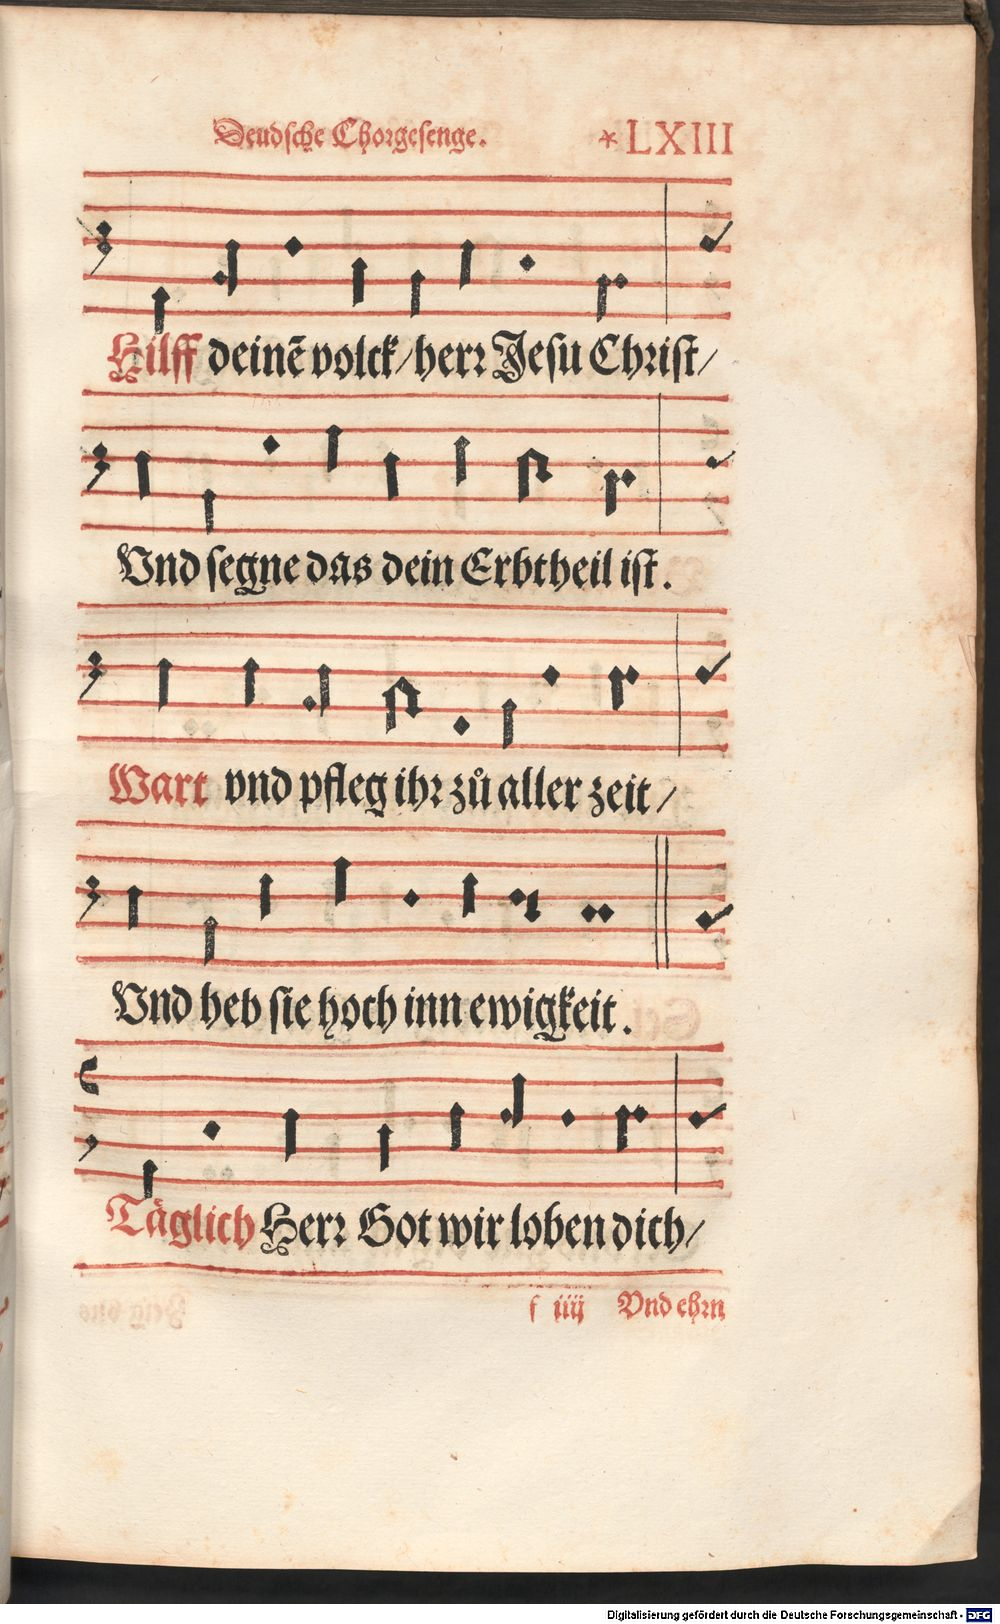 Deudsche Chorgesenge. *LXIII
Hilff deinē volck/herr Jesu Christ/
Vnd segne das dein Erbtheil ist.
Wart vnd pfleg ihr zů aller zeit/
Vnd heb sie hoch inn ewigkeit.
Täglich Herr Got wir loben dich/
f iiij Vnd ehrn
Digitalisierung gefördert durch die Deutsche Forschungsgemeinschaft - DFG